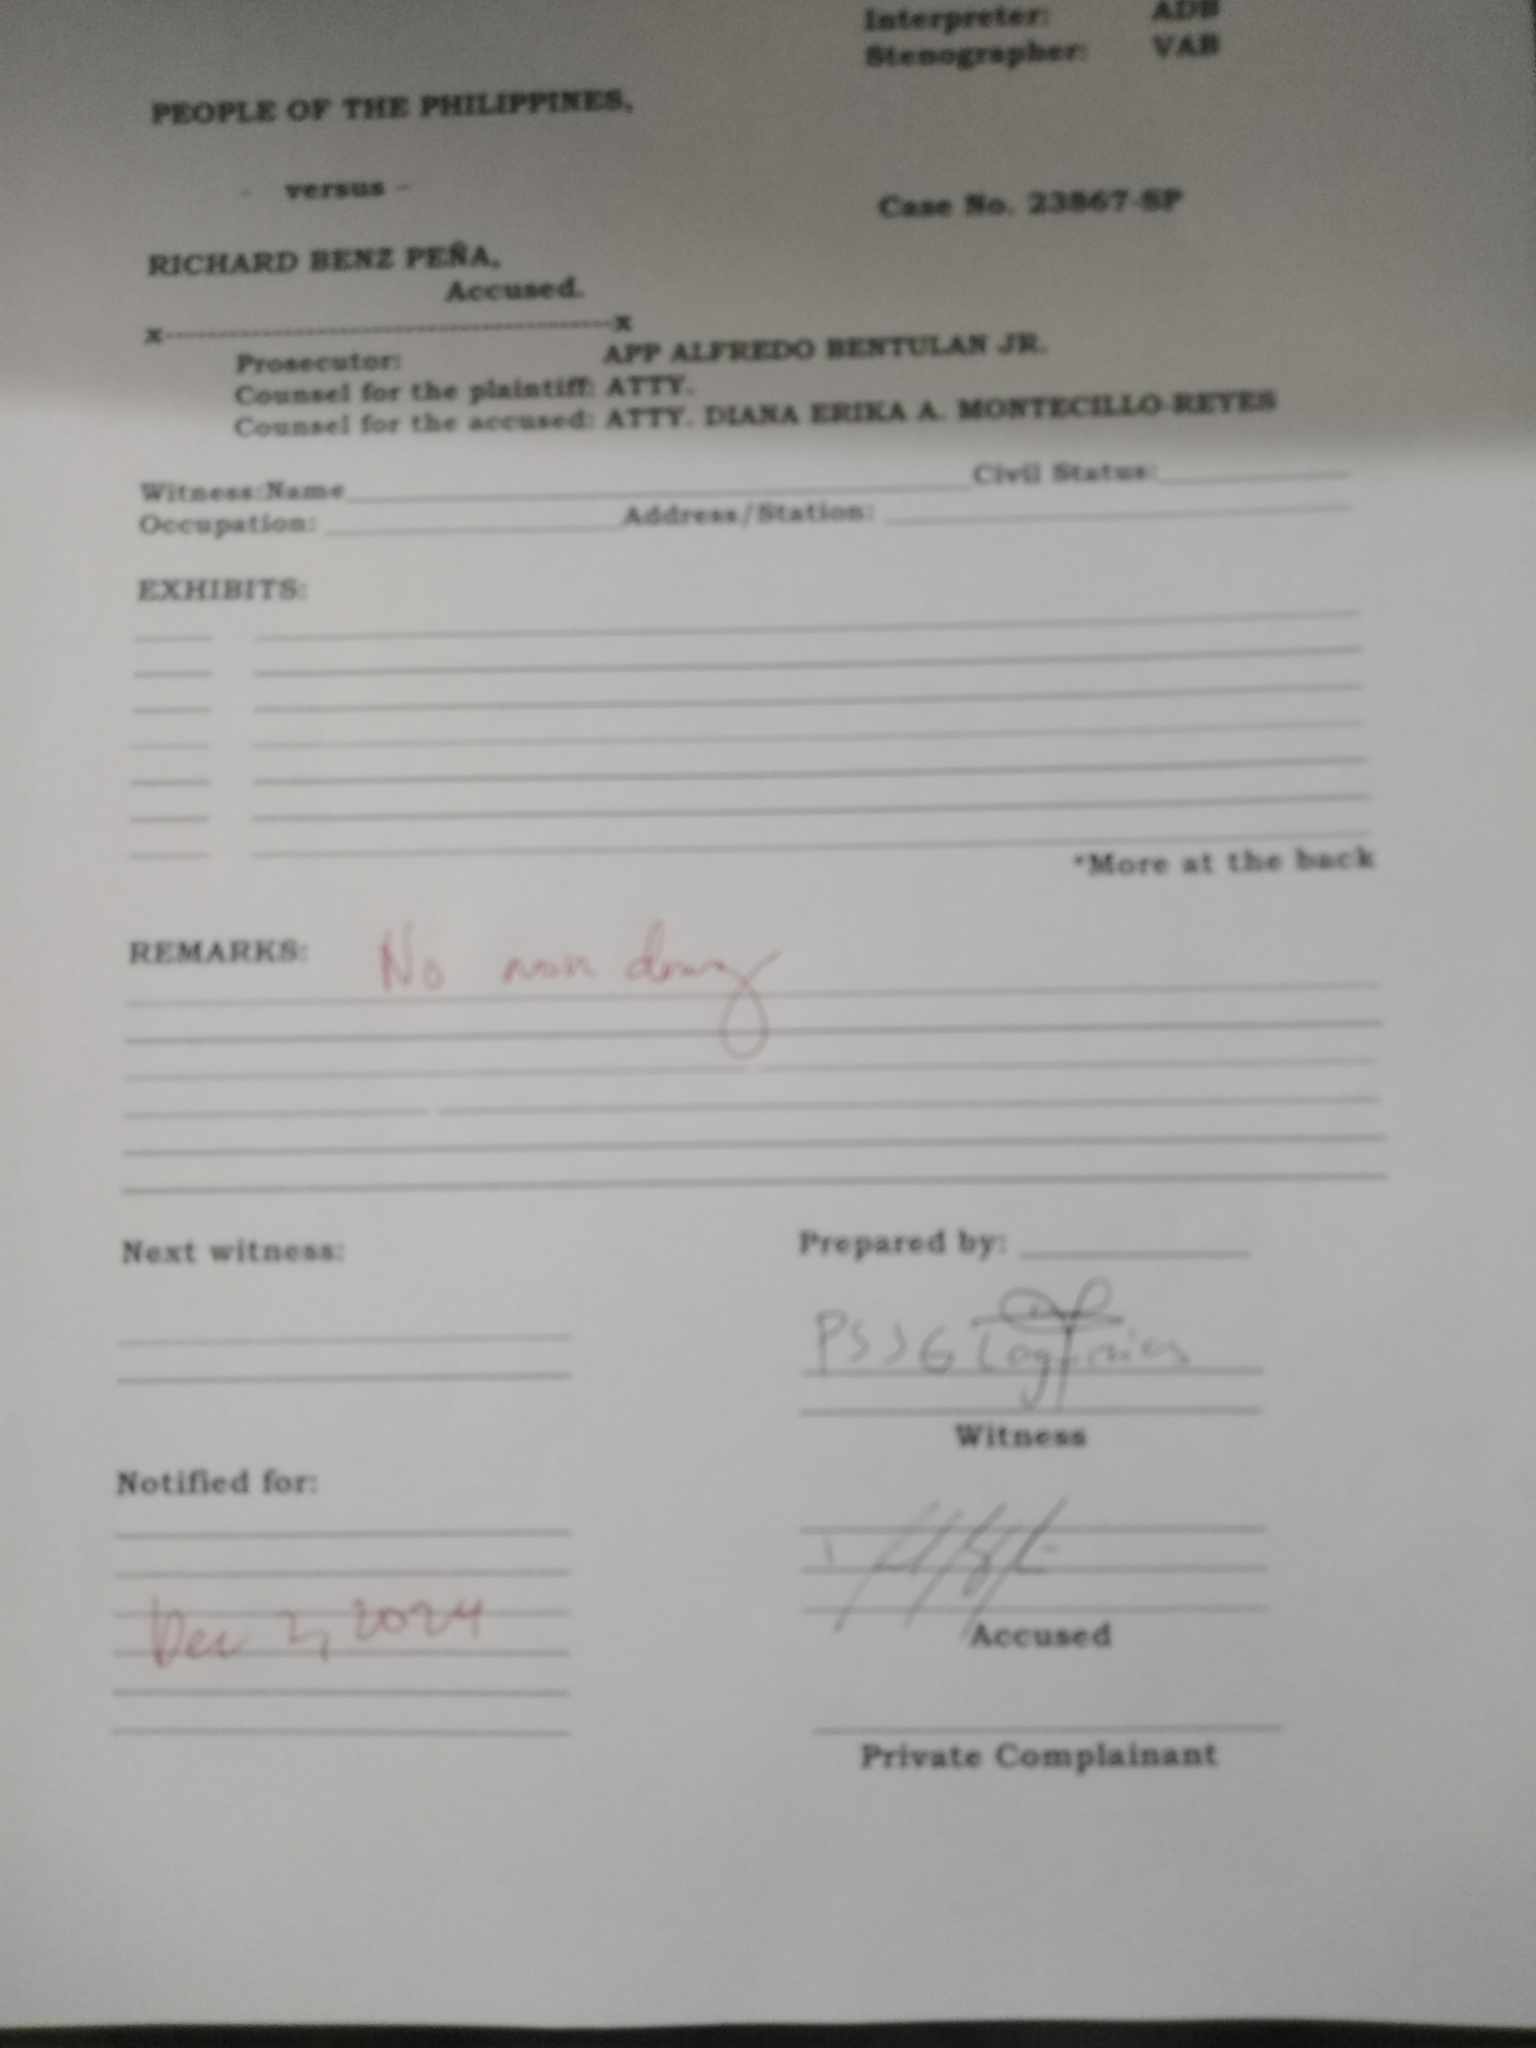 Interpreter: ADB
Stenographer: VAB
PEOPLE OF THE PHILIPPINES,
- versus -
Case No. 23867-SP
RICHARD BENZ PEÑA,
Accused.
x------------------------------------------x
Prosecutor: APP ALFREDO BENTULAN JR.
Counsel for the plaintiff: ATTY.
Counsel for the accused: ATTY. DIANA ERIKA A. MONTECILLO-REYES
Witness:Name Civil Status:
Occupation: Address/Station:
EXHIBITS:
*More at the back
REMARKS: No
Next witness:
Prepared by:
Witness
Notified for:
Dec 2, 2024
Accused
Private Complainant